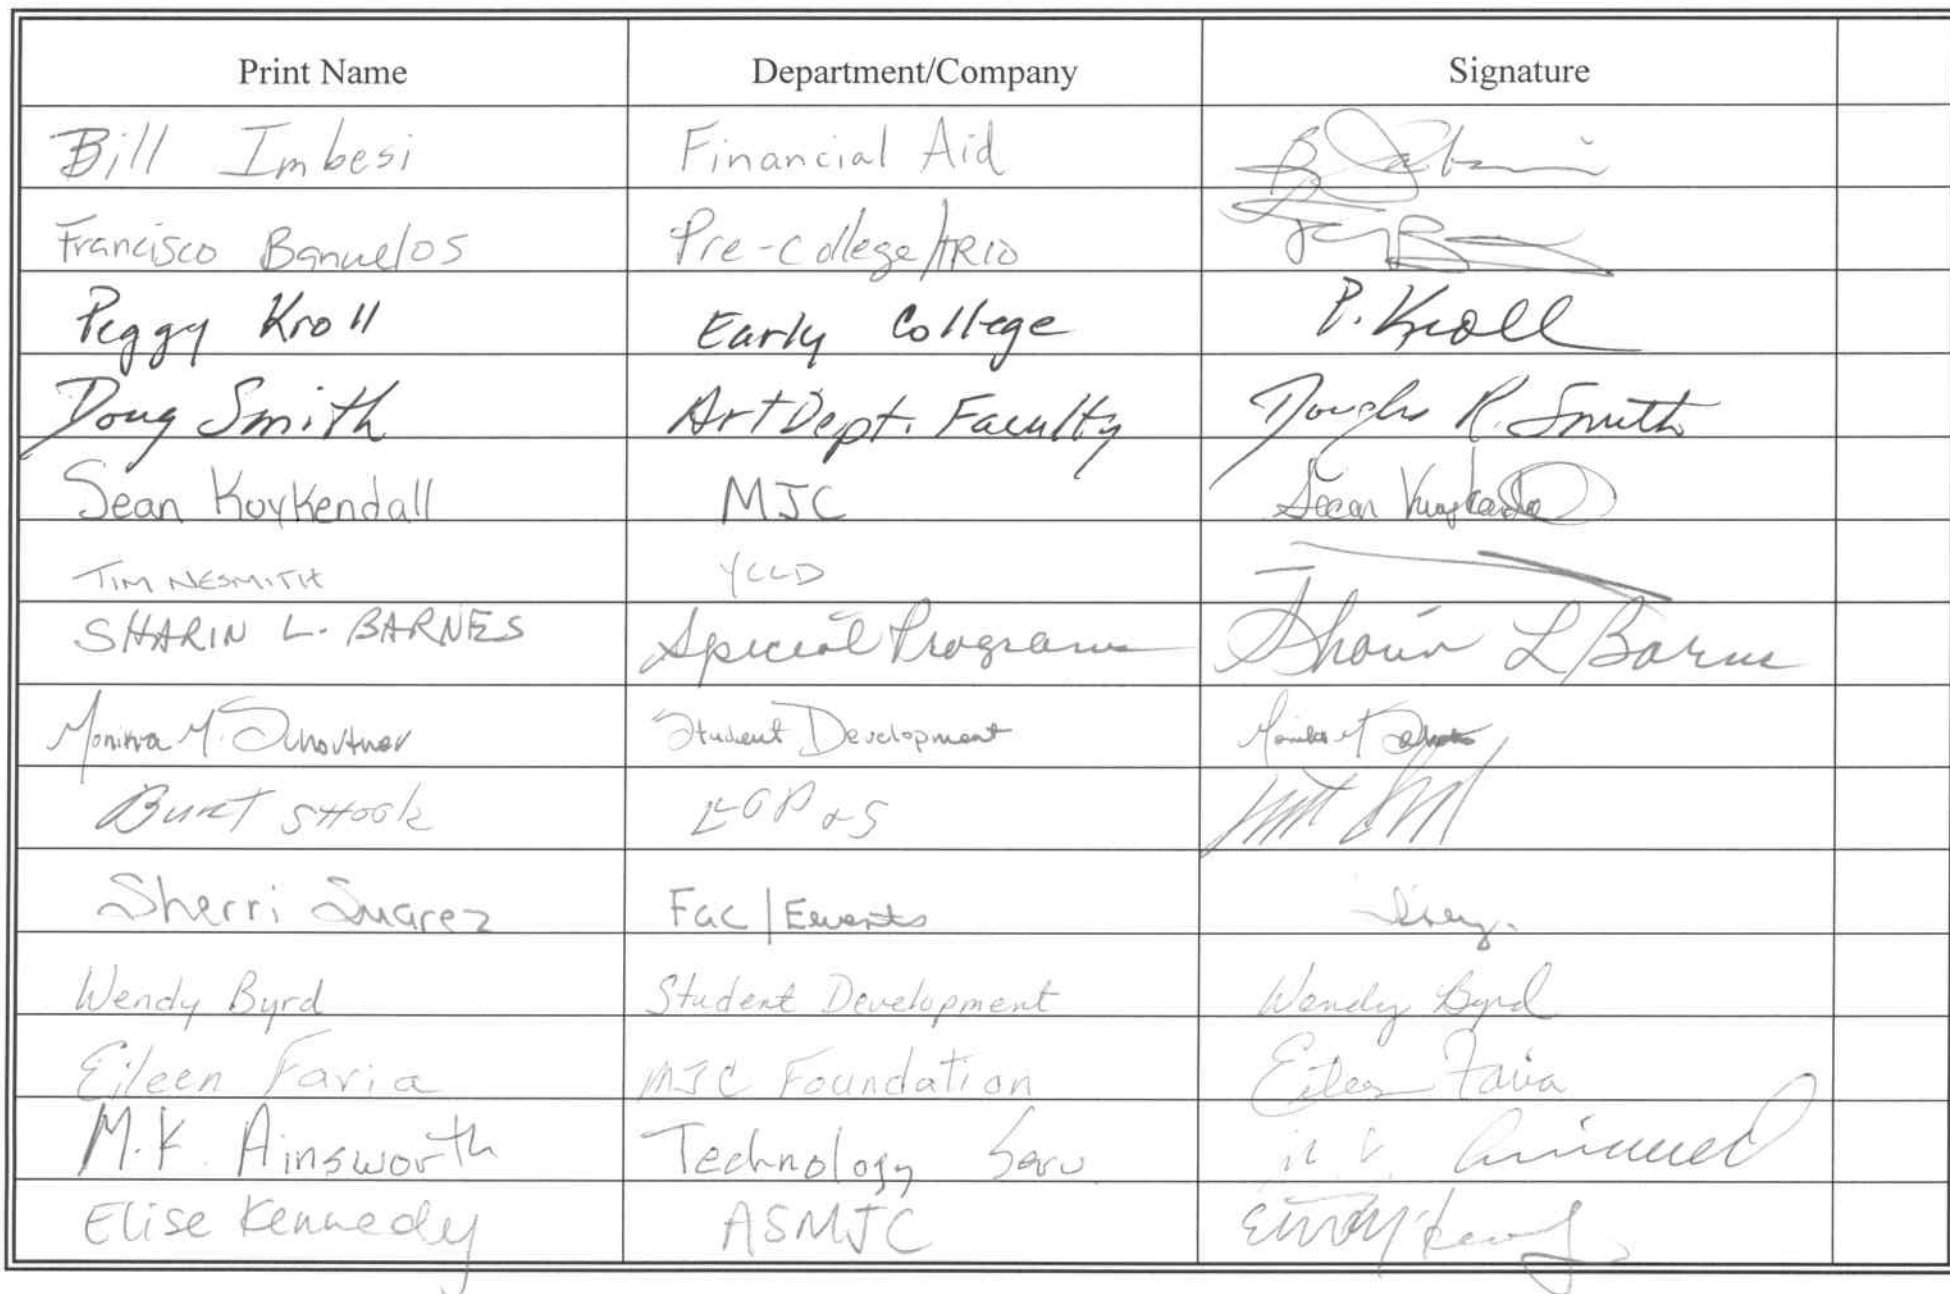 Print Name Department/Company Signature
Bill Imbesi Financial Aid
Francisco Banuelos Pre-College/TRIO
Peggy Kroll Early College P. Kroll
Doug Smith Art Dept. Faculty Douglas R. Smith
Sean Kuykendall MJC Sean Kuykendall
TIM NESMITH YCCD
SHARIN L. BARNES Special Programs Sharin L Barnes
Monika M. Student Development
Burt SHOOK EOPS
Sherri Suarez Fac/Events
Wendy Byrd Student Development Wendy Byrd
Eileen Faria MJC Foundation Eileen Faria
M.K. Ainsworth Technology Serv
Elise Kennedy ASMJC